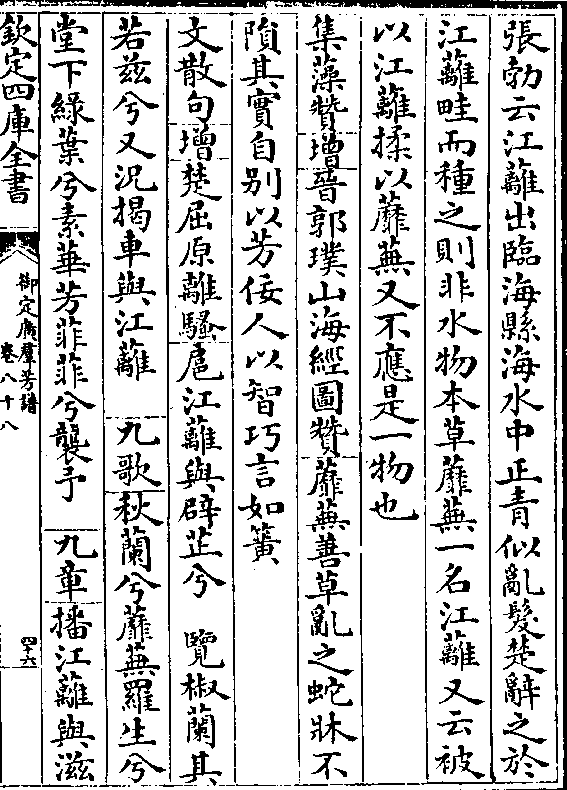 張勃云江蘺出臨海縣海水中正青似亂髮楚辭之於
江蘺畦而種之則非水物本草蘼蕪一名江蘺又云被
以江蘺揉以蘼蕪又不應是一物也
集藻贊增晉郭璞山海經圖贊蘼蕪善草亂之蛇牀不
隕其實自别以芳佞人以智巧言如簧
文散句增楚屈原離騷扈江蘺與辟芷兮　覽椒蘭其
若兹兮又況揭車與江蘺　九歌秋蘭兮蘼蕪羅生兮
堂下綠葉兮素華芳菲菲兮襲予　九章播江蘺與滋
欽定四庫全書
御定廣羣芳譜
卷八十八
四十六